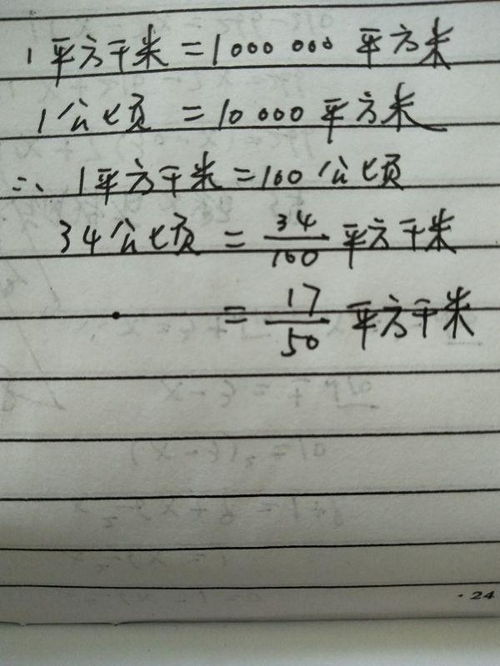 1平方千米=1000 000 平方米
1公顷 =10 000 平方米
∴ 1平方千米=100公顷
34公顷 = 34/100 平方千米
= 17/50 平方千米
·24